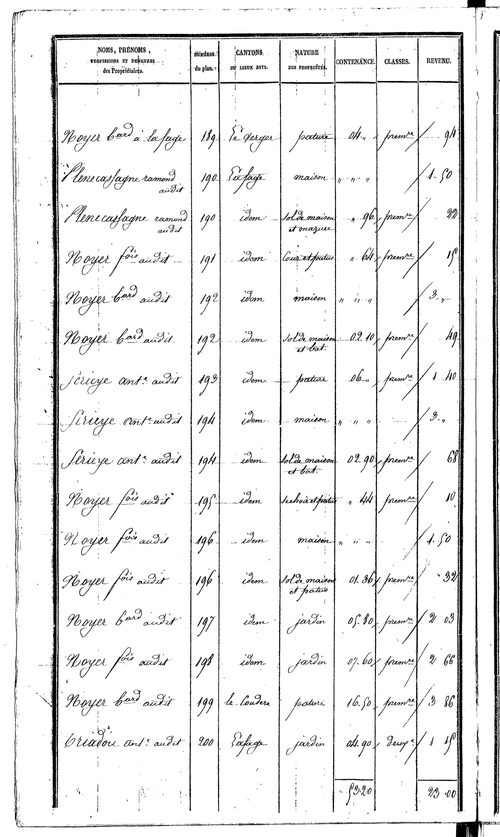 NOMS, PRÉNOMS, NUMÉROS CANTONS NATURE CONTENANCE. CLASSES. REVENU.
PROFESSIONS ET DEMEURES du plan. OU LIEUX DITS. DES PROPRIÉTÉS.
des Propriétaires.
Noyer Bard à lafage 189 Le verger pature 04 " premre 94
Plenecassagne ramond 190 Lafage maison " " " 1. 50
audit
Plenecassagne ramond 190 idem sol de maison " 96 premre 22
audit et mazure
Noyer fois audit 191 idem Cour et patus " 64 premre 15
Noyer Bard audit 192 idem maison " " " 3 "
Noyer Bard audit 192 idem sol de maison 02. 10 premre 49
et bat.
Sérieye ant.e audit 193 idem pature 06 " premre 1 40
Sérieye ant.e audit 194 idem maison " " " 3 "
Sérieye ant.e audit 194 idem sol de maison 02. 90 premre 68
et bat.
Noyer fois audit 195 idem sechoir et patus " 44 premre 10
Noyer fois audit 196 idem maison " " " 1. 50
Noyer fois audit 196 idem sol de maison 01. 36 premre 32
et patus
Noyer Bard audit 197 idem jardin 05. 80 premre 2 03
Noyer fois audit 198 idem jardin 07. 60 premre 2 66
Noyer Bard audit 199 le Couderc pature 16. 50 premre 3 86
ant.e audit 200 Lafage jardin 04. 90 deuxe 1 15
53 20 23 00